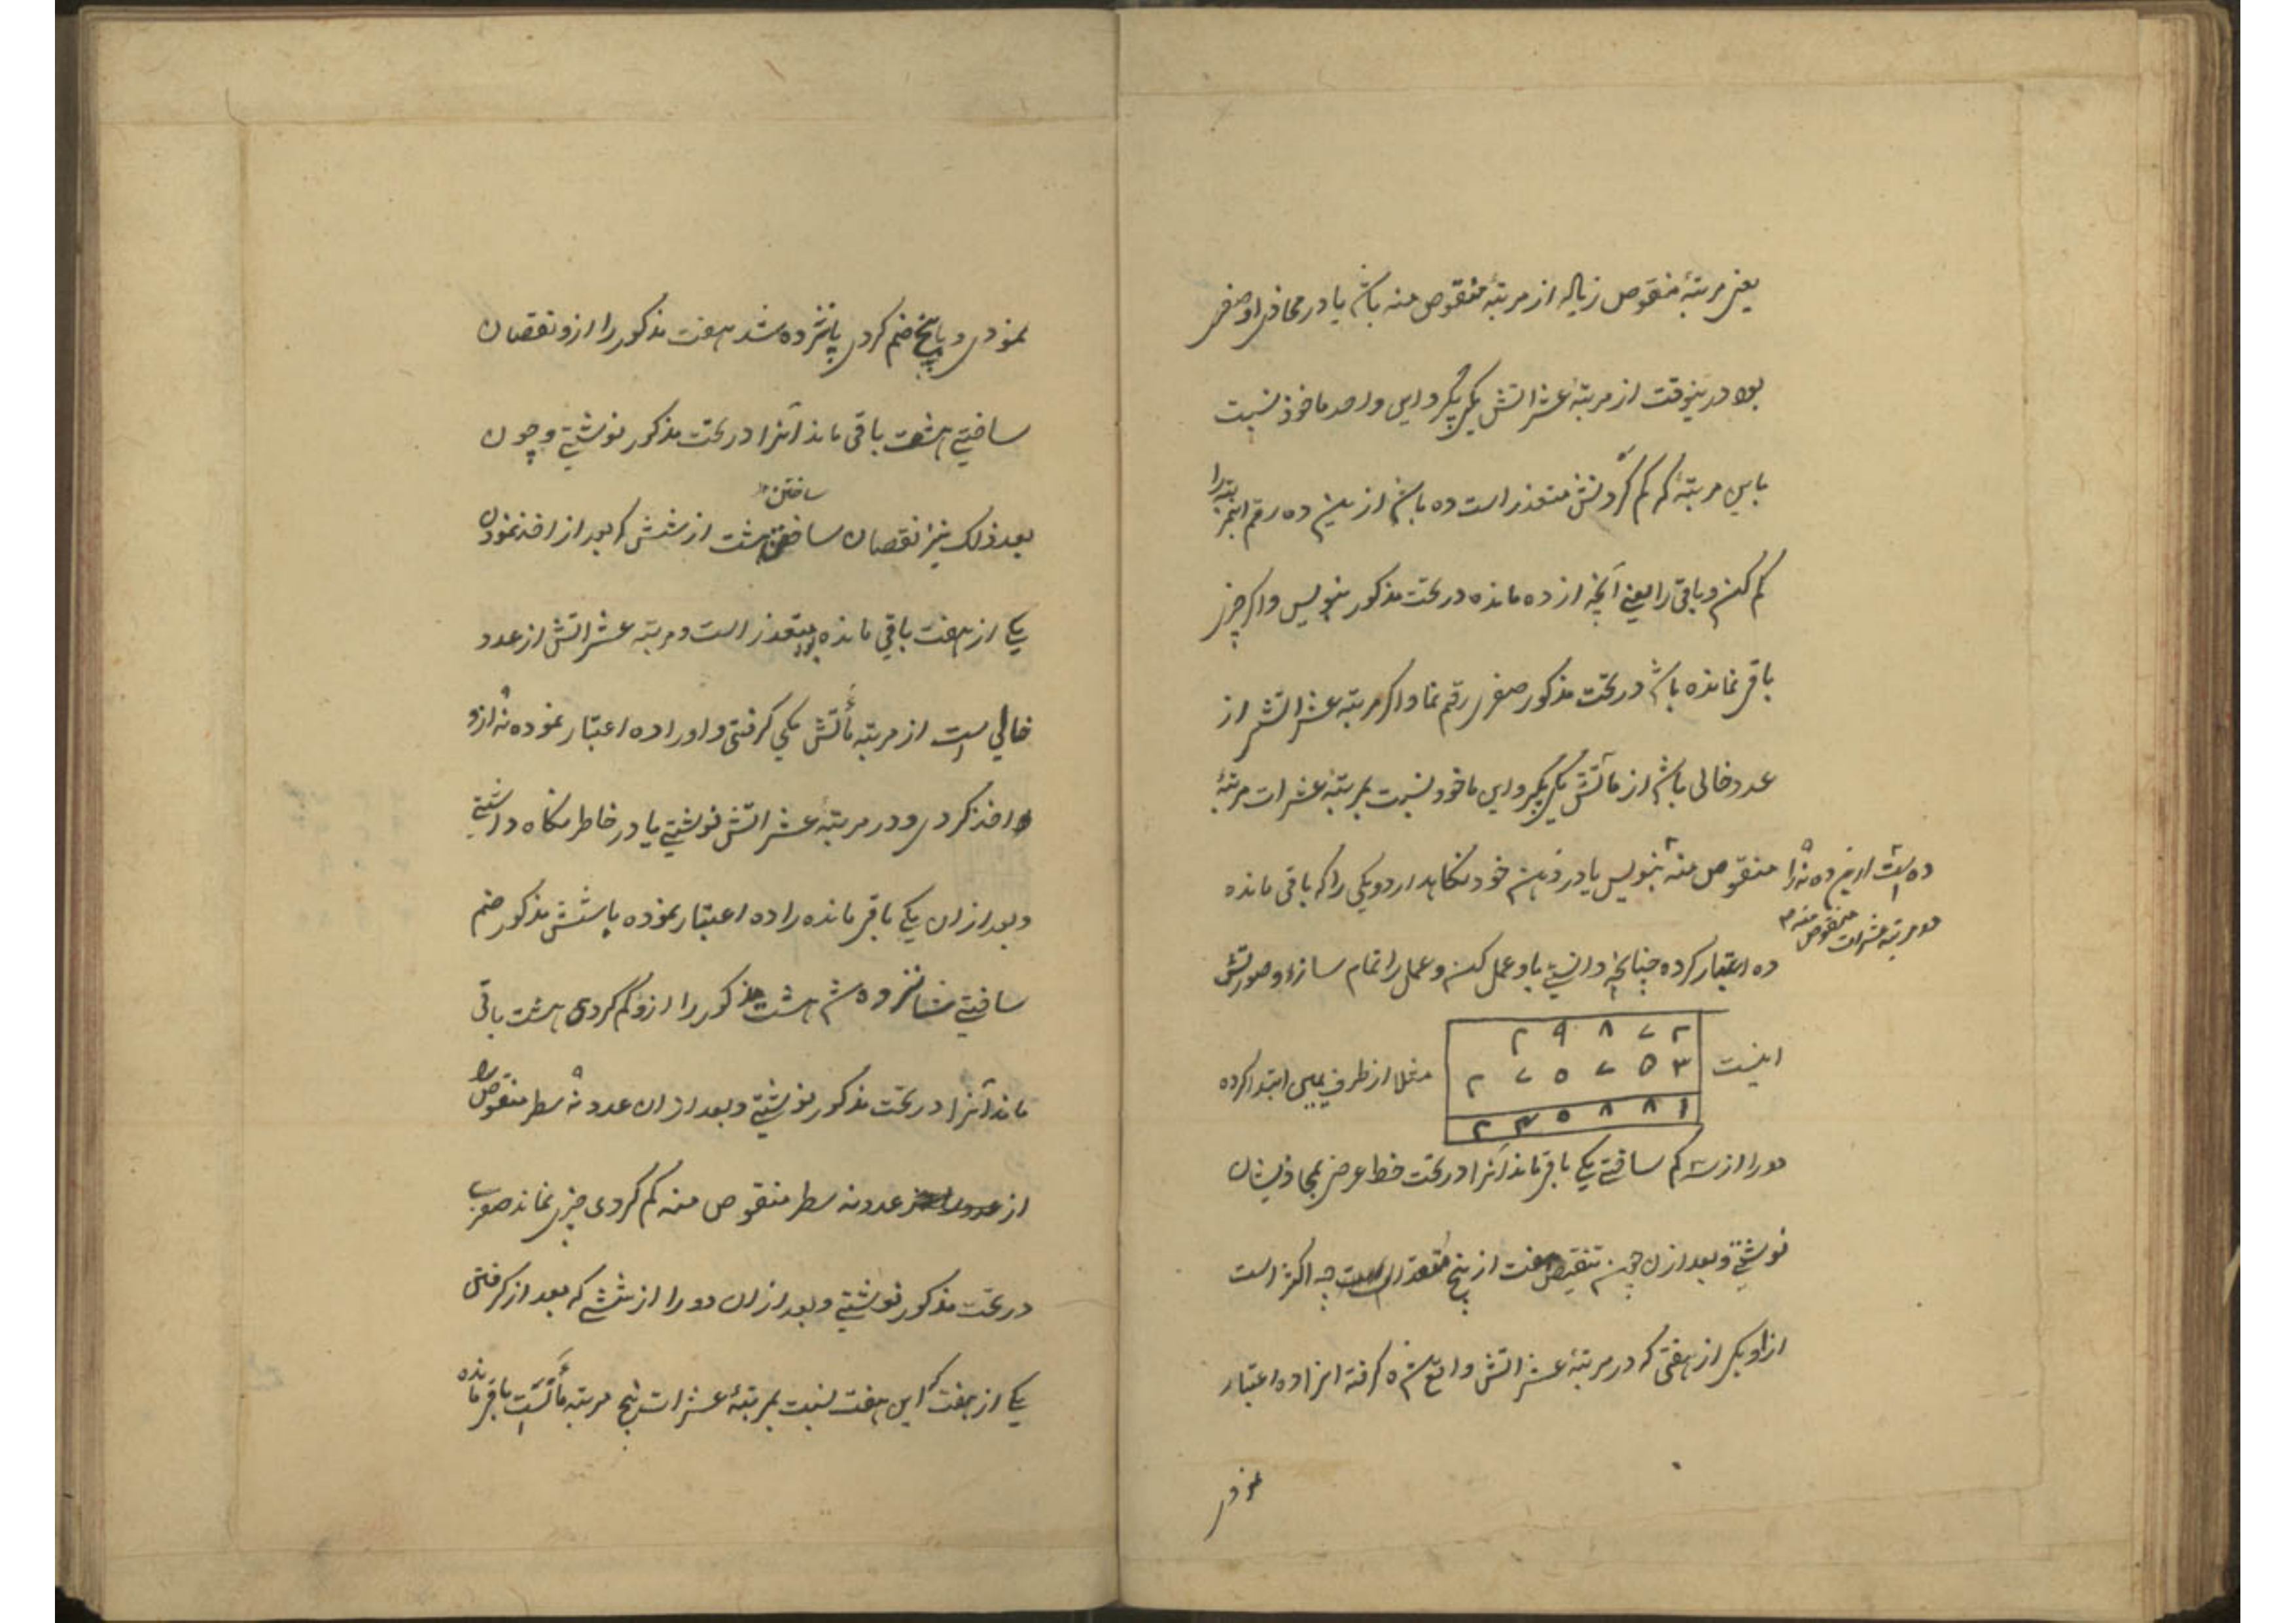 یعنی مرتبهٔ منقوص زیاده از مرتبهٔ منقوص منه باشد یا در محاذی او صفری
بود درینوقت از مرتبهٔ عشراتش یکی بگیر و این واحد ماخوذ نسبت
باین مرتبهٔ که کم کردنش متعذر است ده باشد ازین ده رقم اینمرتبه را
کم کن و باقی را یعنی آنچه از ده مانده در تحت مذکور بنویس و اگر چیزی
باقی نمانده باشد در تحت مذکور صفری رقم نما و اگر مرتبه عشراتش از
عدد خالی باشد از مآتش یکی بگیر و این ماخوذ نسبت بمرتبهٔ عشرات مرتبهٔ
منقوص منه بنویس یا در ذهن خود نگاهدار و یکی را که باقی مانده
ده است ازین ده نه را
در مرتبه عشرات منقوص منه
ده اعتبار کرده چنانچه دانستی باو عمل کن و عمل را تمام ساز و صورتش
اینست
۲ ۹ ۸ ۷ ۲
۲ ۷ ۵ ۷ ۵ ۳
۲ ۳ ۵ ۸ ۸ ۱
مثلا از طرف یمین ابتدا کرده
دو را از سه کم ساختی یکی باقی ماند آنرا در تحت خط عرضی بمحاذیشان
نوشتی و بعد ازان چون تنقیص هفت از پنج متعذر است چه اکثر است
ازو یکی از هفتی که در مرتبهٔ عشراتش واقع شده گرفته انرا ده اعتبار
نمودی
نمودی و با پنج ضم کردی پانزده شد هفت مذکور را ازو نقصان
ساختی هشت باقی ماند آنرا در تحت مذکور نوشتی و چون
ساختن
بعد ذلک نیز نقصان ساختن هشت از شش که بعد از اخذ نمودن
یکی از هفت باقی مانده بود متعذر است و مرتبه عشراتش از عدد
خالی است از مرتبه مآتش یکی گرفتی و او را ده اعتبار نموده نه ازو
اخذ کردی و در مرتبهٔ عشراتش نوشتی یا در خاطر نگاه داشتی
و بعد ازان یکی باقی مانده را ده اعتبار نموده با شش مذکور ضم
ساختی شانزده شد هشت مذکور را ازو کم کردی هشت باقی
ماند آنرا در تحت مذکور نوشتی و بعد ازان عدد نه سطر منقوص را
از عدد نه سطر منقوص منه کم کردی چیزی نماند صفری
در تحت مذکور نوشتی و بعد ازان دو را از شش که بعد از گرفتن
یکی از هفت که این هفت نسبت بمرتبهٔ عشرات پنج مرتبه مآتست باقی مانده